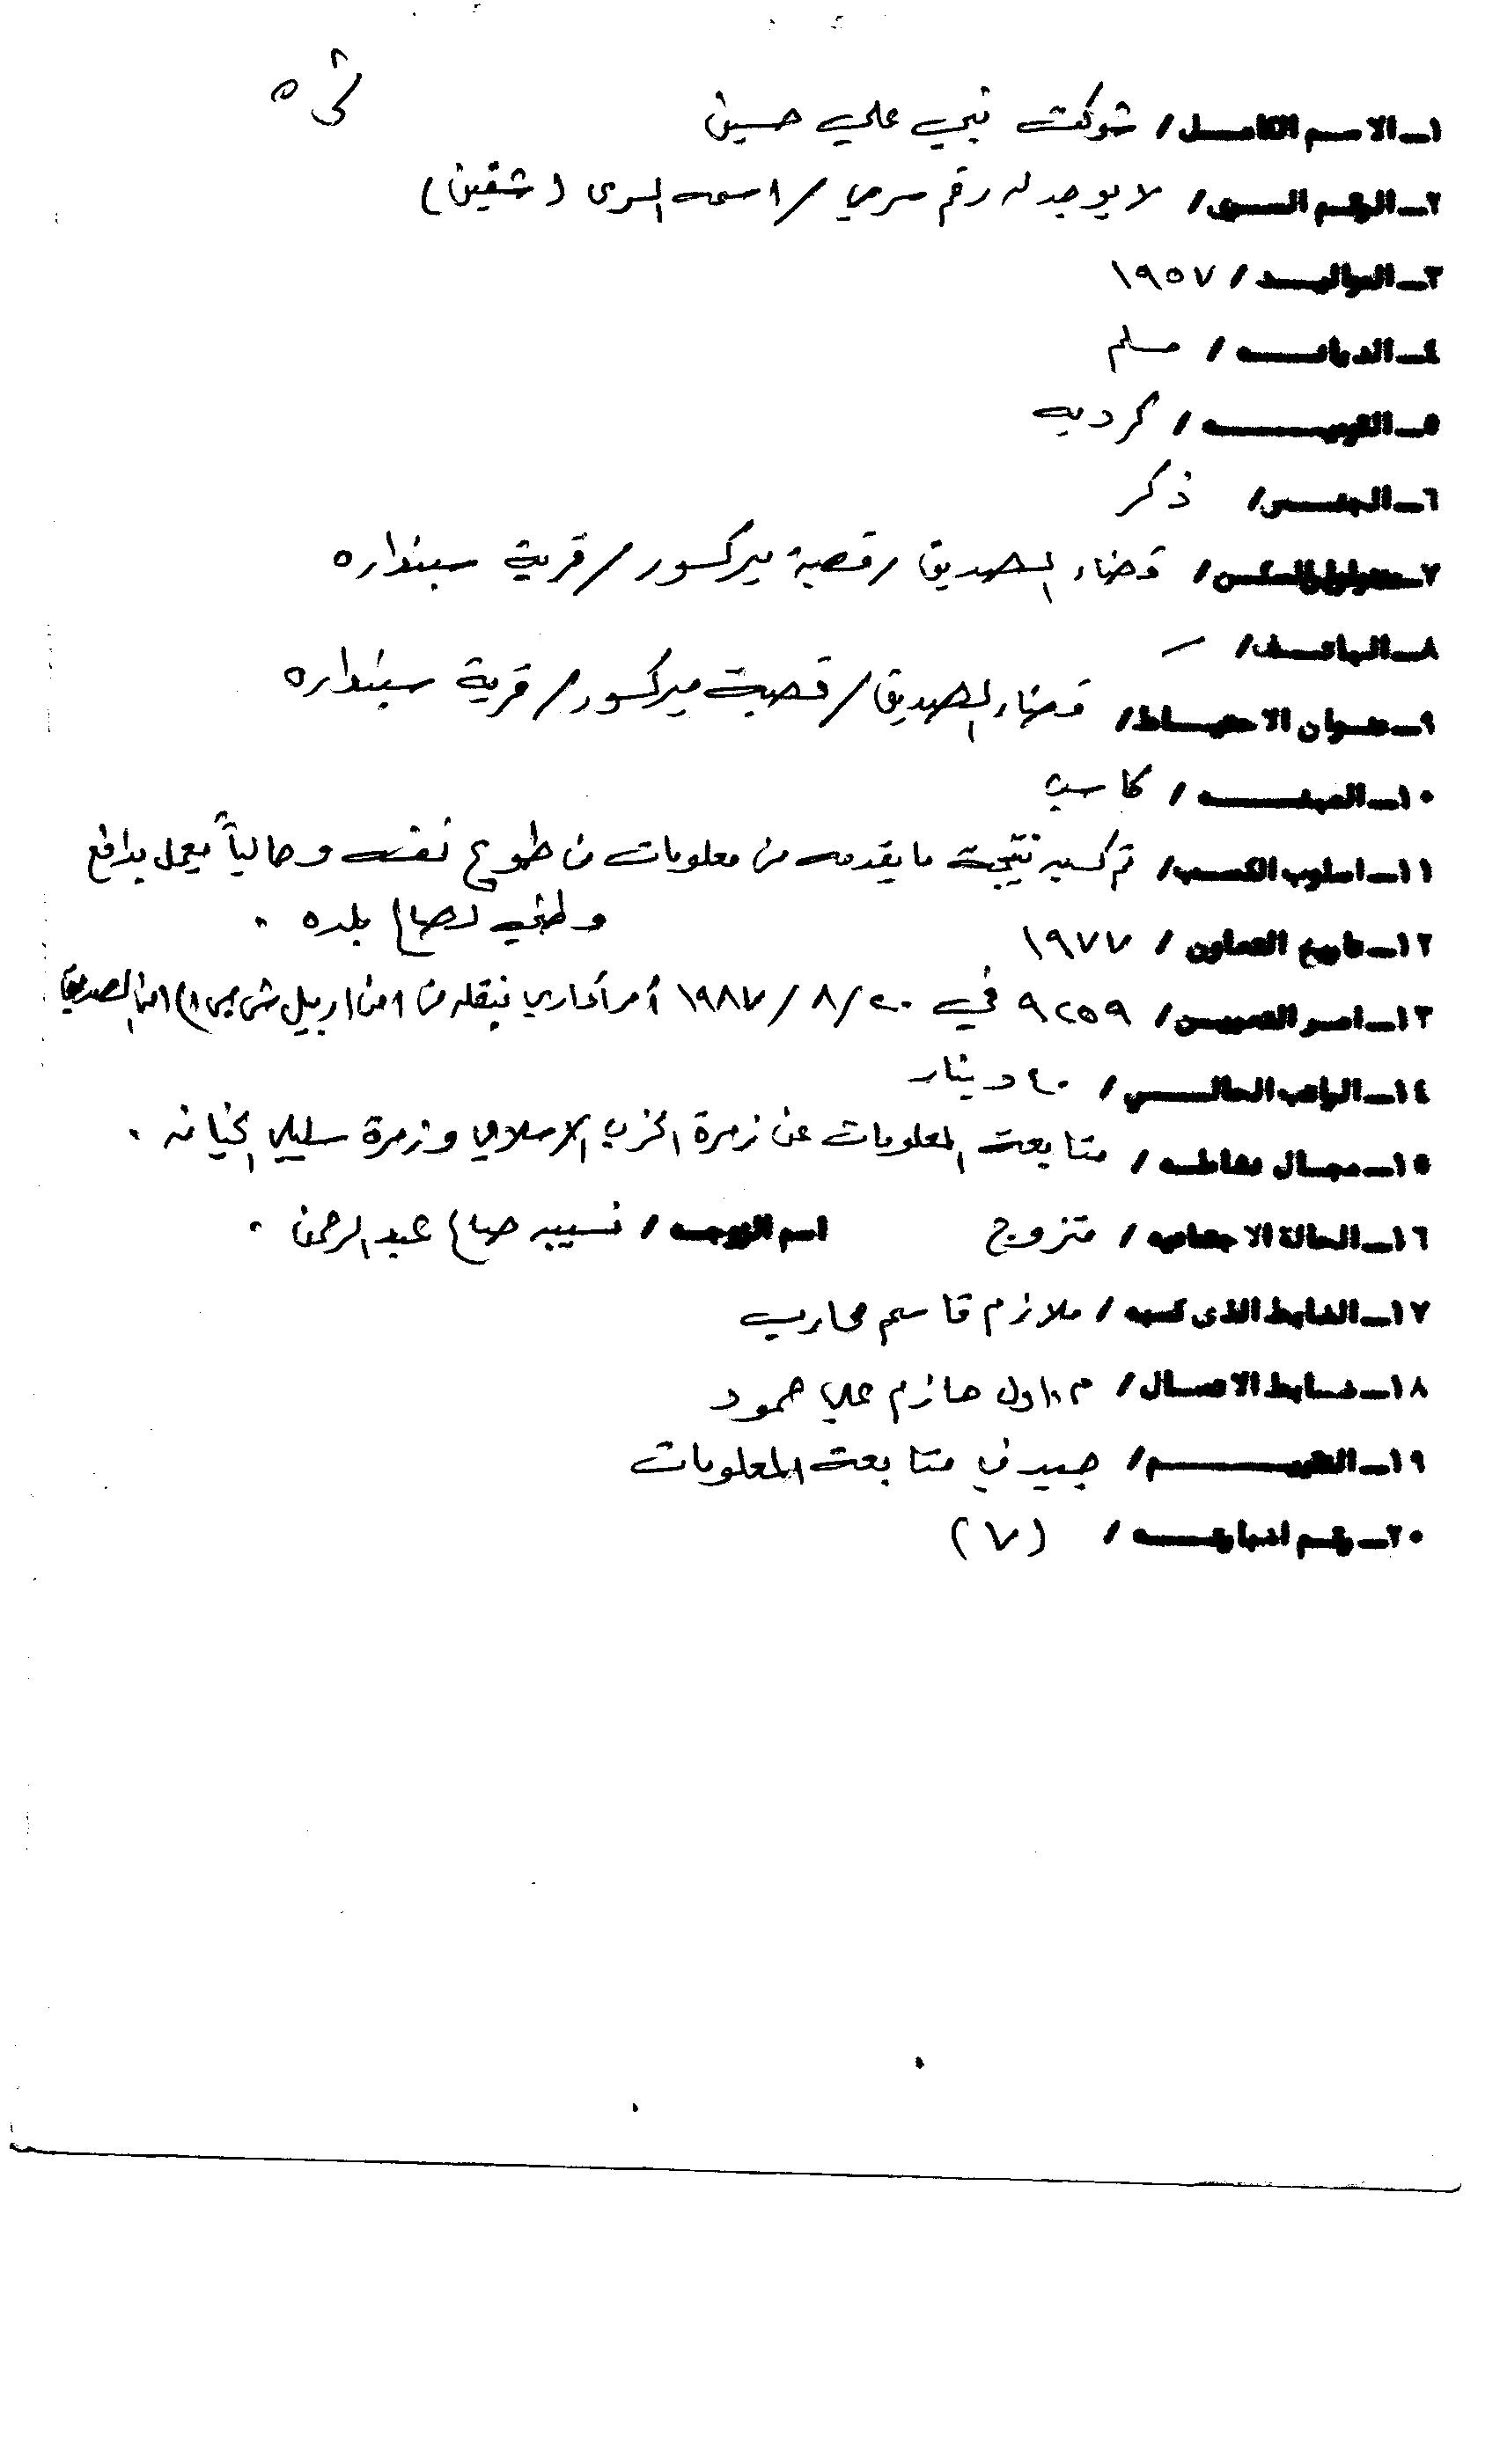 ش ٥
١ـ الاسم الكامل/ شوكت نبي علي حسين
٢ـ الرقم السري/ لا يوجد له رقم سري / اسمه السري ( شقين )
٣ـ المواليد/ ١٩٥٧
٤ـ الديانه/ مسلم
٥ـ القوميه/ كرديه
٦ـ الجنس/ ذكر
٧ـ السكن/ قضاء الصديق / قصبة ميركسور / قرية سبنداره
٨ـ الهاتف/ ـ
٩ـ عنوان الاحتياط/ قضاء الصديق / قصبة ميركسور / قرية سبنداره
١٠ـ المهنه/ كاسب
١١ـ اسلوب الكسب/ تم كسبه نتيجة ما يقدمه من معلومات من طموع نفسه وحالياً يعمل بدافع
وطني لصالح بلده .
١٢ـ تاريخ التعاون/ ١٩٧٧
١٣ـ امر التعيين/ ٩٢٥٩ في ٢٠/ ٨/ ١٩٨٧ أمر أداري بنقله من امن اربيل امن الصديق
١٤ـ الراتب الحالي/ ٤٠ دينار
١٥ـ مجال نشاطه/ متابعة المعلومات عن زمرة الحزب الاسلامي وزمرة سليلي الخيانه .
١٦ـ الحالة الاجتماعيه/ متزوج اسم الزوجه/ نسيبه صالح عبد الرحمن .
١٧ـ الضابط الذى كسبه/ ملازم قاسم محارب
١٨ـ ضابط الاتصال/ م. اول حازم علي حمود
١٩ـ التقييم/ جيد في متابعة المعلومات
٢٠ـ رقم اضبارته/ (٧)